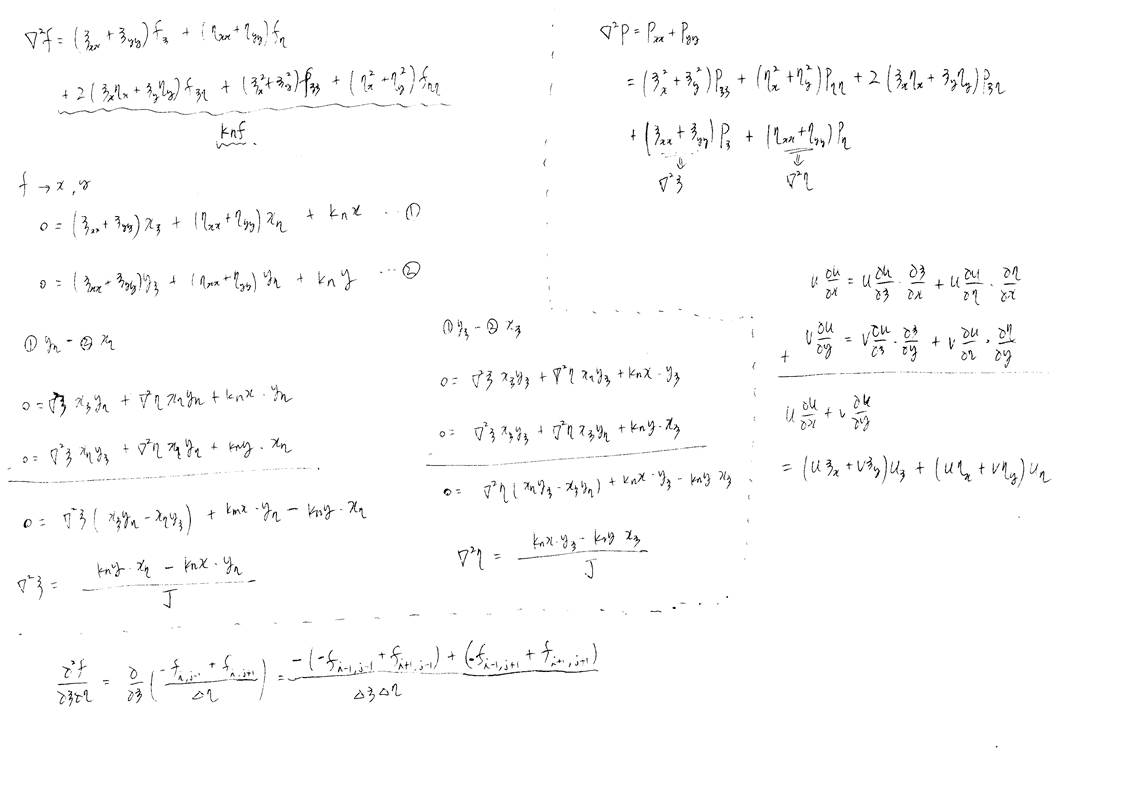 ∇²f = (ξxx + ξyy) fξ + (ηxx + ηyy) fη
+ 2 (ξxηx + ξyηy) fξη + (ξx² + ξy²) fξξ + (ηx² + ηy²) fηη
knf.
f → x, y
0 = (ξxx + ξyy) xξ + (ηxx + ηyy) xη + knx ... ①
0 = (ξxx + ξyy) yξ + (ηxx + ηyy) yη + kny ... ②
① yη - ② xη
0 = ∇²ξ xξyη + ∇²η xηyη + knx · yη
0 = ∇²ξ xηyξ + ∇²η xηyη + kny · xη
0 = ∇²ξ ( xξyη - xηyξ ) + knx · yη - kny · xη
∇²ξ = (kny · xη - knx · yη) / J
① yξ - ② xξ
0 = ∇²ξ xξyξ + ∇²η xηyξ + knx · yξ
0 = ∇²ξ xξyξ + ∇²η xξyη + kny · xξ
0 = ∇²η ( xηyξ - xξyη ) + knx · yξ - kny xξ
∇²η = (knx · yξ - kny xξ) / J
∇²P = Pxx + Pyy
= (ξx² + ξy²) Pξξ + (ηx² + ηy²) Pηη + 2 (ξxηx + ξyηy) Pξη
+ (ξxx + ξyy) Pξ + (ηxx + ηyy) Pη
⇓ ⇓
∇²ξ ∇²η
u ∂u/∂x = u ∂u/∂ξ · ∂ξ/∂x + u ∂u/∂η · ∂η/∂x
+ v ∂u/∂y = v ∂u/∂ξ · ∂ξ/∂y + v ∂u/∂η · ∂η/∂y
u ∂u/∂x + v ∂u/∂y
= (u ξx + v ξy) uξ + (u ηx + v ηy) uη
∂²f/∂ξ∂η = ∂/∂ξ ( (-f i,j-1 + f i,j+1) / Δη ) = (-(-f i-1,j-1 + f i+1,j-1) + (-f i-1,j+1 + f i+1,j+1)) / ΔξΔη